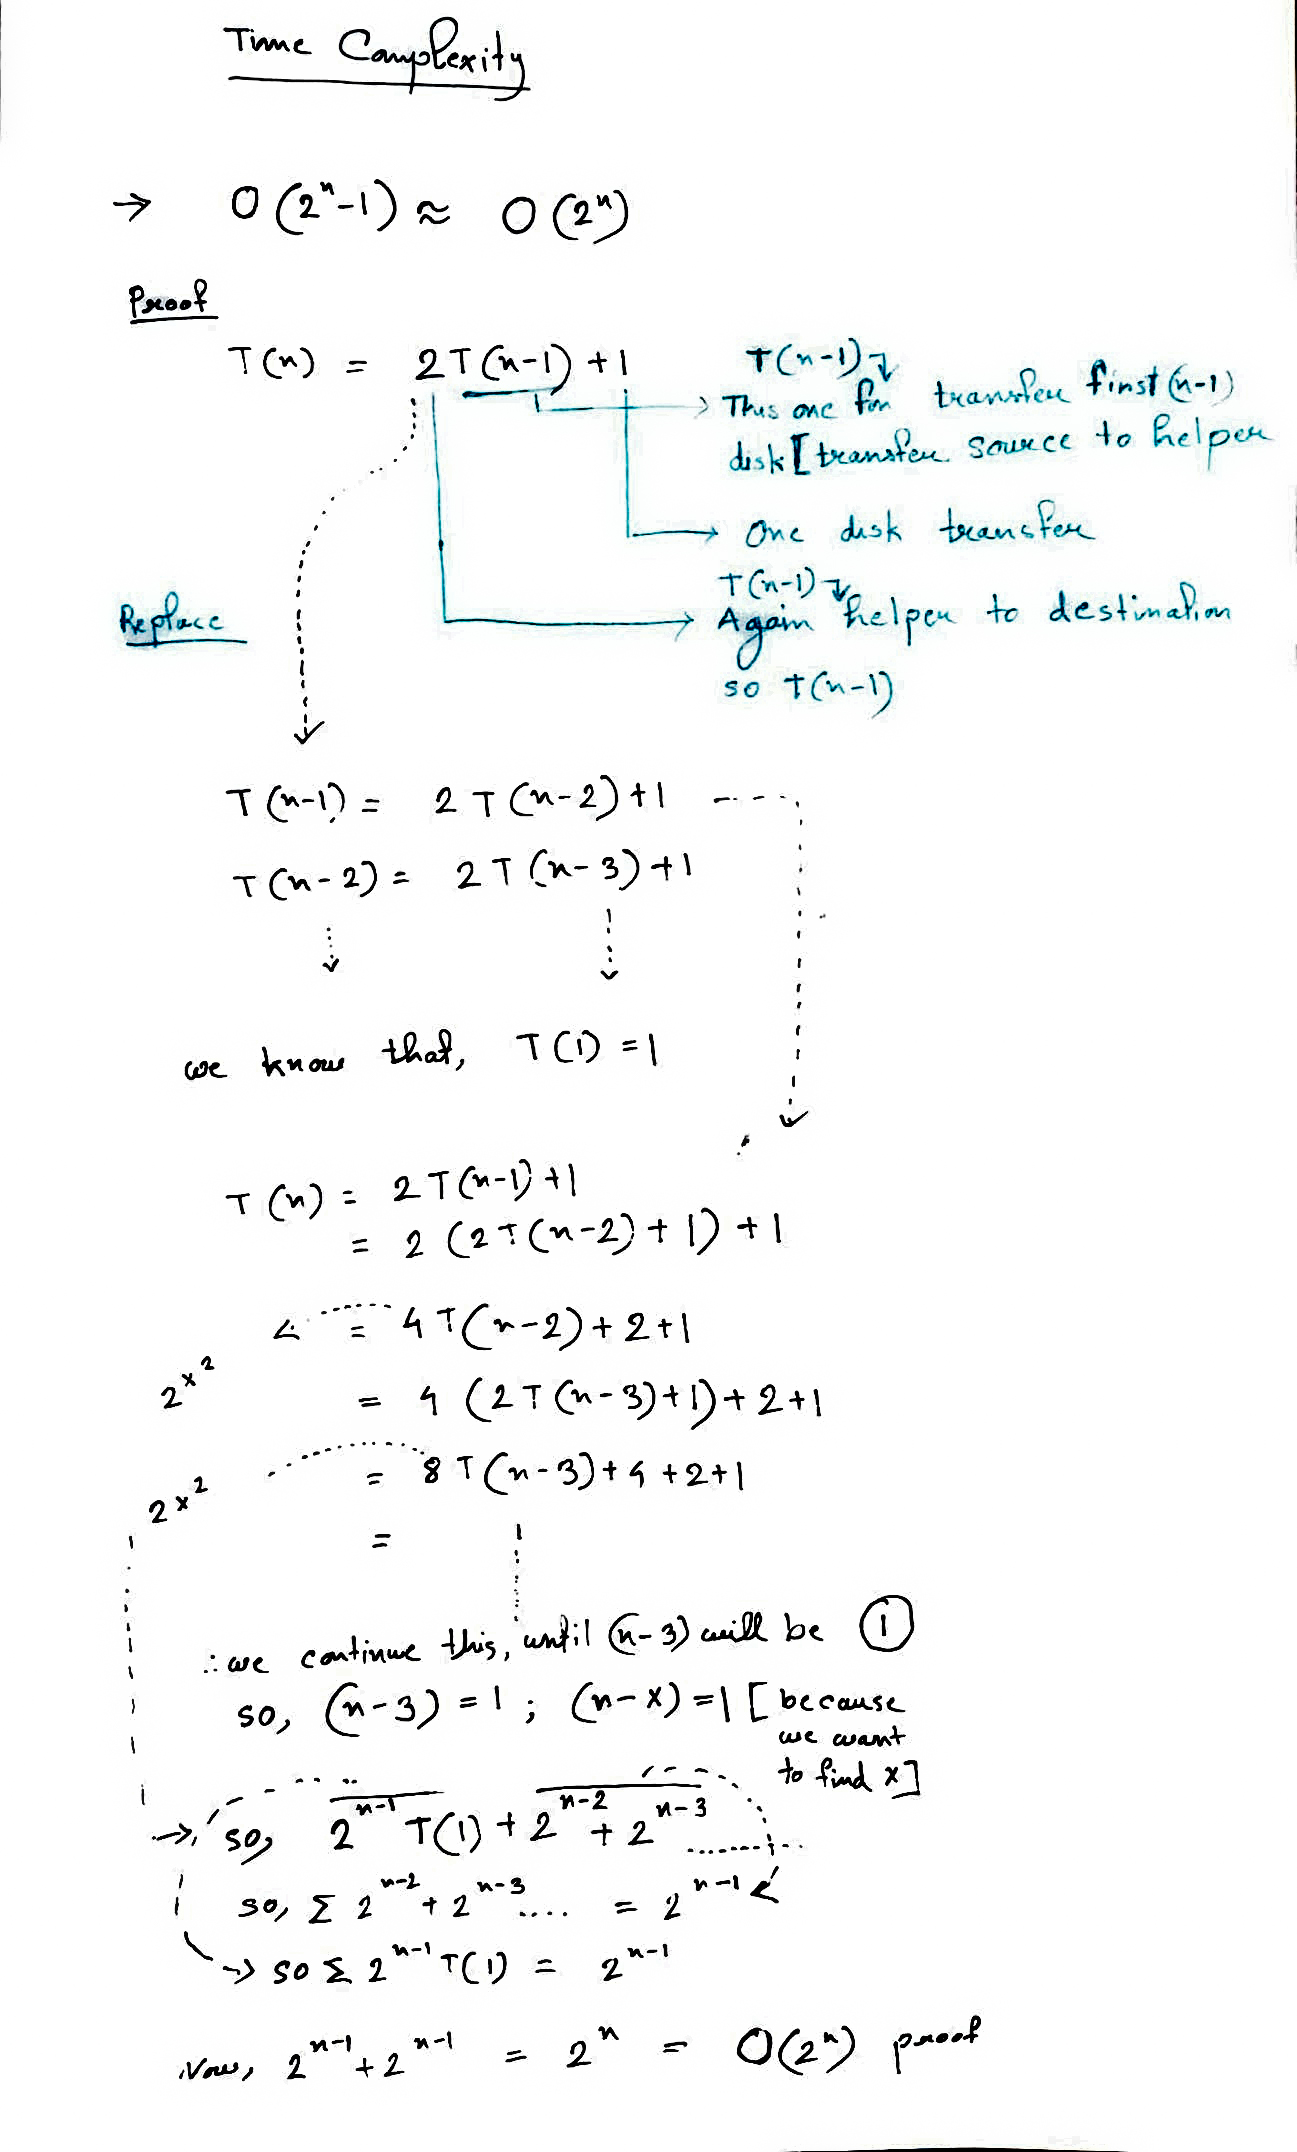 Time Complexity
→ O(2ⁿ-1) ≈ O(2ⁿ)
Proof
T(n) = 2T(n-1) +1
T(n-1)
This one for transfer first (n-1)
disk [transfer source to helper
One disk transfer
T(n-1)
Again helper to destination
so T(n-1)
Replace
T(n-1) = 2T(n-2)+1
T(n-2) = 2T(n-3)+1
we know that, T(1) = 1
T(n) = 2T(n-1)+1
= 2(2T(n-2)+1)+1
= 4T(n-2)+2+1
2ˣ²
= 4(2T(n-3)+1)+2+1
= 8T(n-3)+4+2+1
2ˣ²
=
∴ we continue this, until (n-3) will be ①
so, (n-3) = 1 ; (n-x) = 1 [because
we want
to find x]
so, 2ⁿ⁻¹ T(1) + 2ⁿ⁻² + 2ⁿ⁻³ ........
so, Σ 2ⁿ⁻² + 2ⁿ⁻³ .... = 2ⁿ⁻¹
→ so Σ 2ⁿ⁻¹ T(1) = 2ⁿ⁻¹
Now, 2ⁿ⁻¹ + 2ⁿ⁻¹ = 2ⁿ = O(2ⁿ) proof